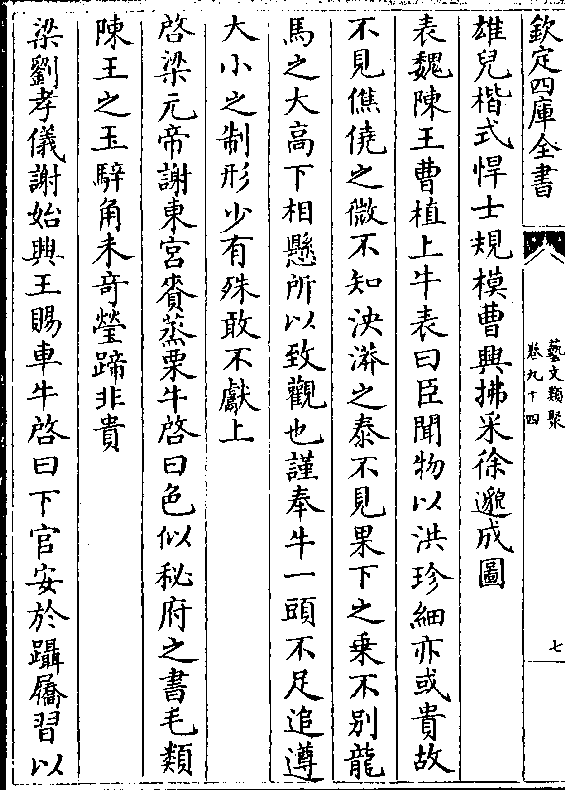 欽定四庫全書
藝文類聚
卷九十四
七
雄兒楷式悍士規模曹興拂采徐邈成圖
表魏陳王曹植上牛表曰臣聞物以洪珍細亦或貴故
不見僬僥之微不知泱漭之泰不見果下之乗不别龍
馬之大高下相懸所以致觀也謹奉牛一頭不足追遵
大小之制形少有殊敢不獻上
啓梁元帝謝東宮賚蒸栗牛啓曰色似秘府之書毛類
陳王之玉騂角未竒瑩蹄非貴
梁劉孝儀謝始興王賜車牛啓曰下官安於躡屩習以